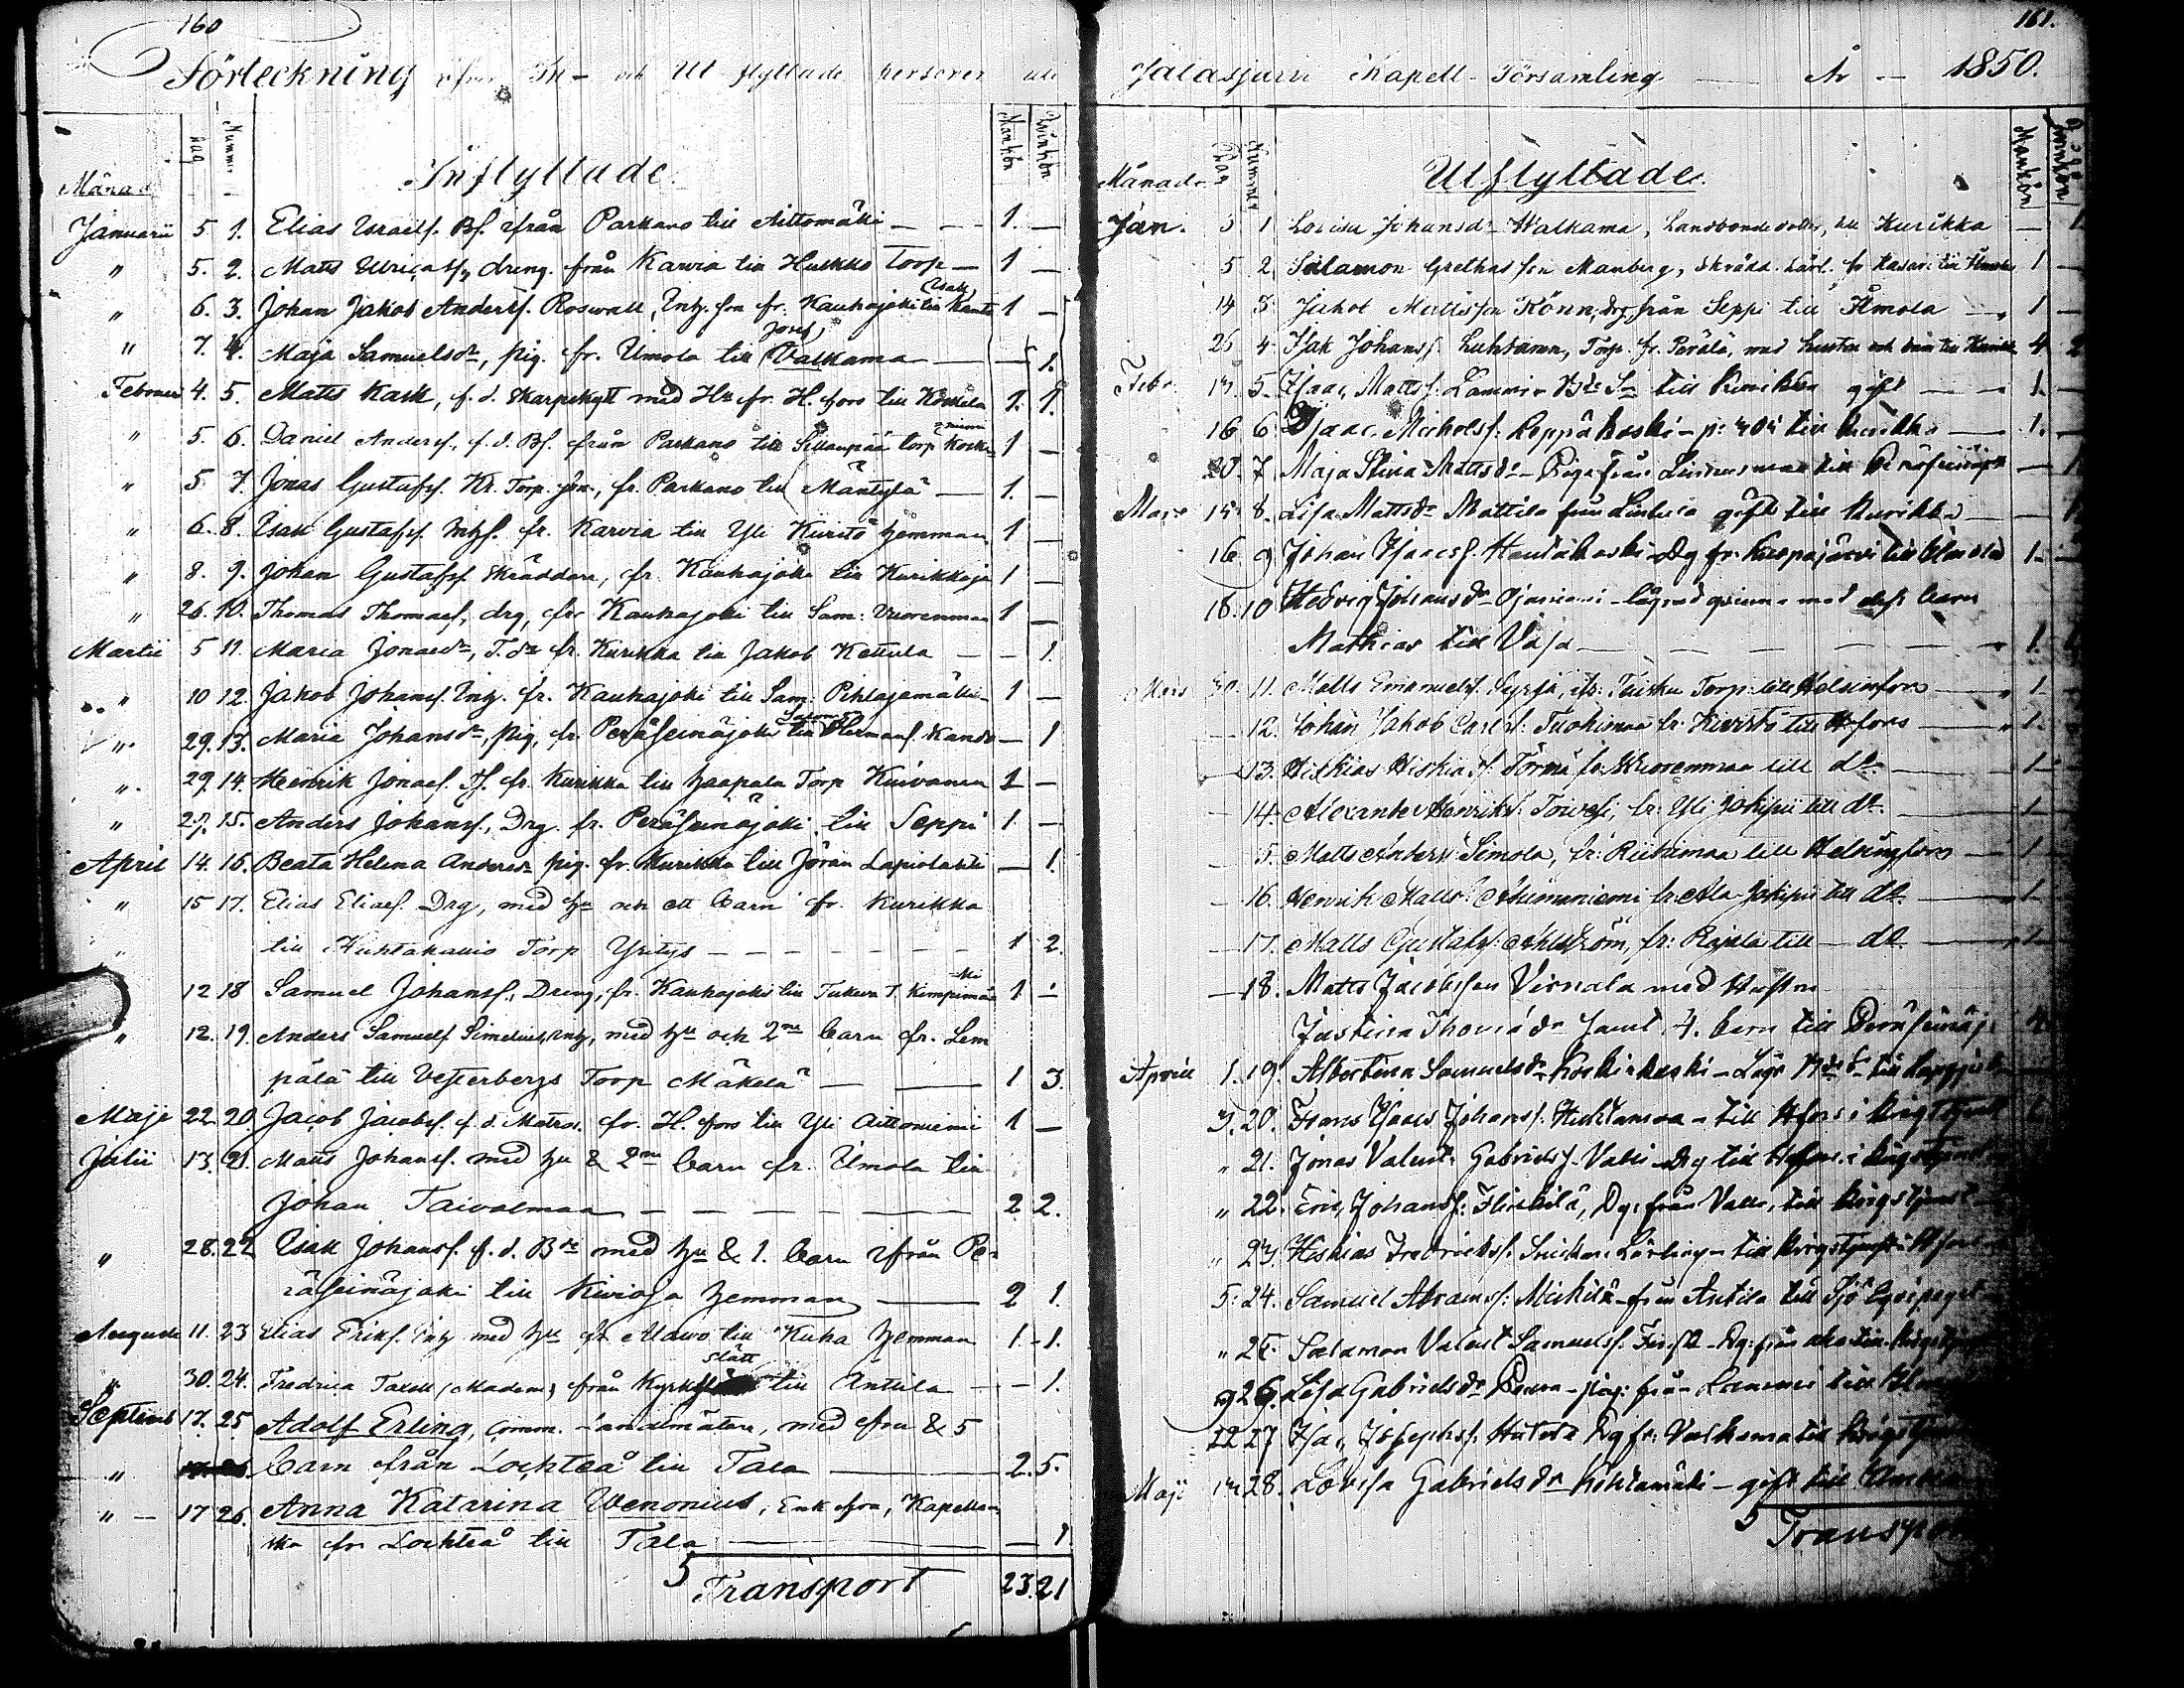 160
Förteckning öfver In- och Ut flyttade personer uti
Månad Dag Nummer Inflyttade Mankön Qvinkön
Januarii 5 1. Elias Israelsf. Bf. ifrån Parkano till Aittomäki - - - 1. —
" 5. 2. Matts Ulricasf, dreng. från Karvia till Huskko Torp — 1 —
(Isak)
" 6. 3. Johan Jakob Andersf. Roswall, Inh. son fr. Kauhajoki till Kanto 1 —
Josef
" 7. 4. Maja Samuelsdr, pig. fr. Ilmola till Valkama — — 1.
Februarii 4. 5. Matts Kask, f. d. Skarpskytt med Hu fr. H.fors till Koskela 1. 1.
" 5. 6. Daniel Andersf. f. d. Bf. från Parkano till Sillanpää torp Koske 1 —
" 5 7. Jonas Gustafsf. Kr. Torp. son, fr. Parkano till Mäntylä — 1. —
" 6. 8. Isak Gustafsf. Inhs. fr. Karvia till Yli Kiuristö hemman 1 —
" 8. 9. Johan Gustafsf. Skräddare, fr. Kauhajoki till Kurikkaja 1 —
" 26. 10. Thomas Thomasf, drg, fr Kauhajoki till Sam: Vuorenmaa 1 —
Martii 5 11. Maria Jonaedr, T. dr fr. Kurikka till Jakob Kettula — — 1.
" 10 12. Jakob Johansf. Inh. fr. Kauhajoki till Sam: Pihlajamäki 1 —
" 29. 13. Maria Johansdr, pig, fr. Peräseinäjoki till Hermansf. Kando — 1
" 29. 14. Henrik Jonaef. fr. Kurikka till Haapala Torp Kuivanen 1 —
" 29. 15. Anders Johansf., Drg. fr. Peräseinäjoki till Seppi 1 —
April 14. 16. Beata Helena Andersdr pig. fr. Kurikka till Jöran Lapiolahti — 1.
" 15 17. Elias Eliaef. Drg, med hu och ett barn fr. Kurikka
" till Kuhtakallio Torp Yritys — — — — — 1 2.
12 18 Samuel Johansf., Dreng, fr. Kauhajoki till Tukeva T. Kimpimä 1 —
" 12. 19. Anders Samuelsf Simelius, Inh, med hu och 2ne barn fr. Lem
pälä till Vesterbergs Torp Mäkelä — — 1 3.
Maji 22. 20. Jacob Jacobsf. f. d. Matros. fr. H.fors till Yli Aittoniemi 1 —
Julii 13. 21. Matts Johansf. med hu & 2ne barn fr. Ilmola till
Johan Taivalmaa — — — — — 2 2.
" 28. 22 Isak Johansf. f. d. Bde med hu & 1. barn ifrån Pe-
räseinäjoki till Kivioja hemman — 2 1.
Augusti 11. 23 Elias Eriksf. Inh med hu fr Alavo till Kuha hemman 1. - 1.
slätt
" 30. 24. Fredrica Taxell (Madem) från Kyrk till Anttila — — 1.
Septemb 17. 25 Adolf Erling, Comm. Landtmätare, med fru & 5
" barn från Lochteå till Tala — 2. 5.
" — 17 26. Anna Katarina Wenonius, Enkefru, Kapellan
ska fr Lochteå till Tala — — 1
Transport 23. 21

161.
Jalasjärvi Kapell-Församling — År — 1850.
Månader Dag Nummer Utflyttade Mankön Qvinkön
Jan. 5 1 Lovisa Johansdr Walkama, Landbondedotter, till Kurikka — 1
5 2. Salamon Grethasson Manberg, skrädd. Lärl. fr Hasari till 1 —
14 3 Jakob Mattsson Könn, drg från Seppi till Ilmola — 1
26 4 Isak Johansf. Luhtanen, Torp. fr. Perälä, med hustru och barn till Kurikka 4 2
Febr. 13. 5. Isaac Mattsf. Lammi Bde Sn till Kurikka gift — 1.
16 6 Isaac Michelsf. Leppäkoski till Kurikka — 1. —
20. 7 Maja Stina Mattsdr - Piga från Länsmans till Peräseinäjoki — 1
Mars 15 8. Lisa Mattsdr Mattila från Luhta gift till Kurikka — — 1.
16. 9 Johan Isaacsf. Hautakoski Dg fr. till Ilmola 1. —
18. 10 Hedvig Johansdr Ojaniemi - lägrad qvinna med dess barn
Mathias till Vasa — — — — — 1. 1
Mars 30. 11. Matts Emanuelsf. Syrjä, fr: Torp: till Helsinfors — 1
— 12. Johan Jakob Carlsf: Tuohimaa fr: Kivistö till H.fors — 1.
— 13. Hiskias Hiskiasf: Törmä fr Wuorenmaa till do — 1
— 14. Alexander Henriksf. Toivesi, fr: Yli Jokipii till do. — 1
— 15. Matts Andersf: Simola, fr: Riihimaa till Helsingfors — 1
— 16. Henrik Mattsf. Nummiemi fr: Ala Jokipii till do. — 1
— 17. Matts Gustafsf: Ahlström, fr: Rajala till — do. — 1
— 18. Matts Jacobsson Virnala med Hustru
Justina Thomasdr samt 4. barn till Peräseinäj. 4
April 1. 19. Albertina Samuelsdr Koskikoski - Lägr
3. 20. Frans Isaac Johansf. Huhtamaa - till H.fors i Krigstjenst 1
" 21. Jonas Valent. Gabrielsf. Valli - Drg till H.fors i krigstjenst
" 22. Eric Johansf: Hirikilä, Dg: från Valli, till krigstjenst
" 23. Hiskias Fredricksf. Snickare Lärling - till krigstjenst i H.fors
5. 24. Samuel Abramsf. Mickilä - från Antila till Sjö Equipaget
" 25. Salamon Valent Samuelsf. - Dg: från till krigstjenst
9 26. Lisa Gabrielsdr - pig: från Lammi till Ilmola
22 27 Isac Josephsf. Hutola Dg fr: Valkama till krigstjenst
Maji 13 28. Lovisa Gabrielsdr Kohtamäki - gift till Ilmola
Transport